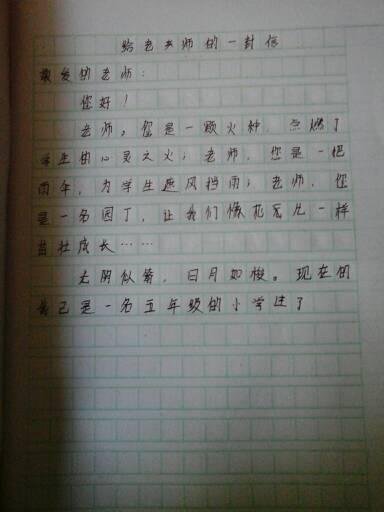 给老老师的一封信
敬爱的老师：
您好！
老师，您是一颗火种，点燃了
学生的心灵之火；老师，您是一把
雨伞，为学生遮风挡雨；老师，您
是一名园丁，让我们像花朵儿一样
茁壮成长……
光阴似箭，日月如梭。现在的
我已是一名五年级的小学生了